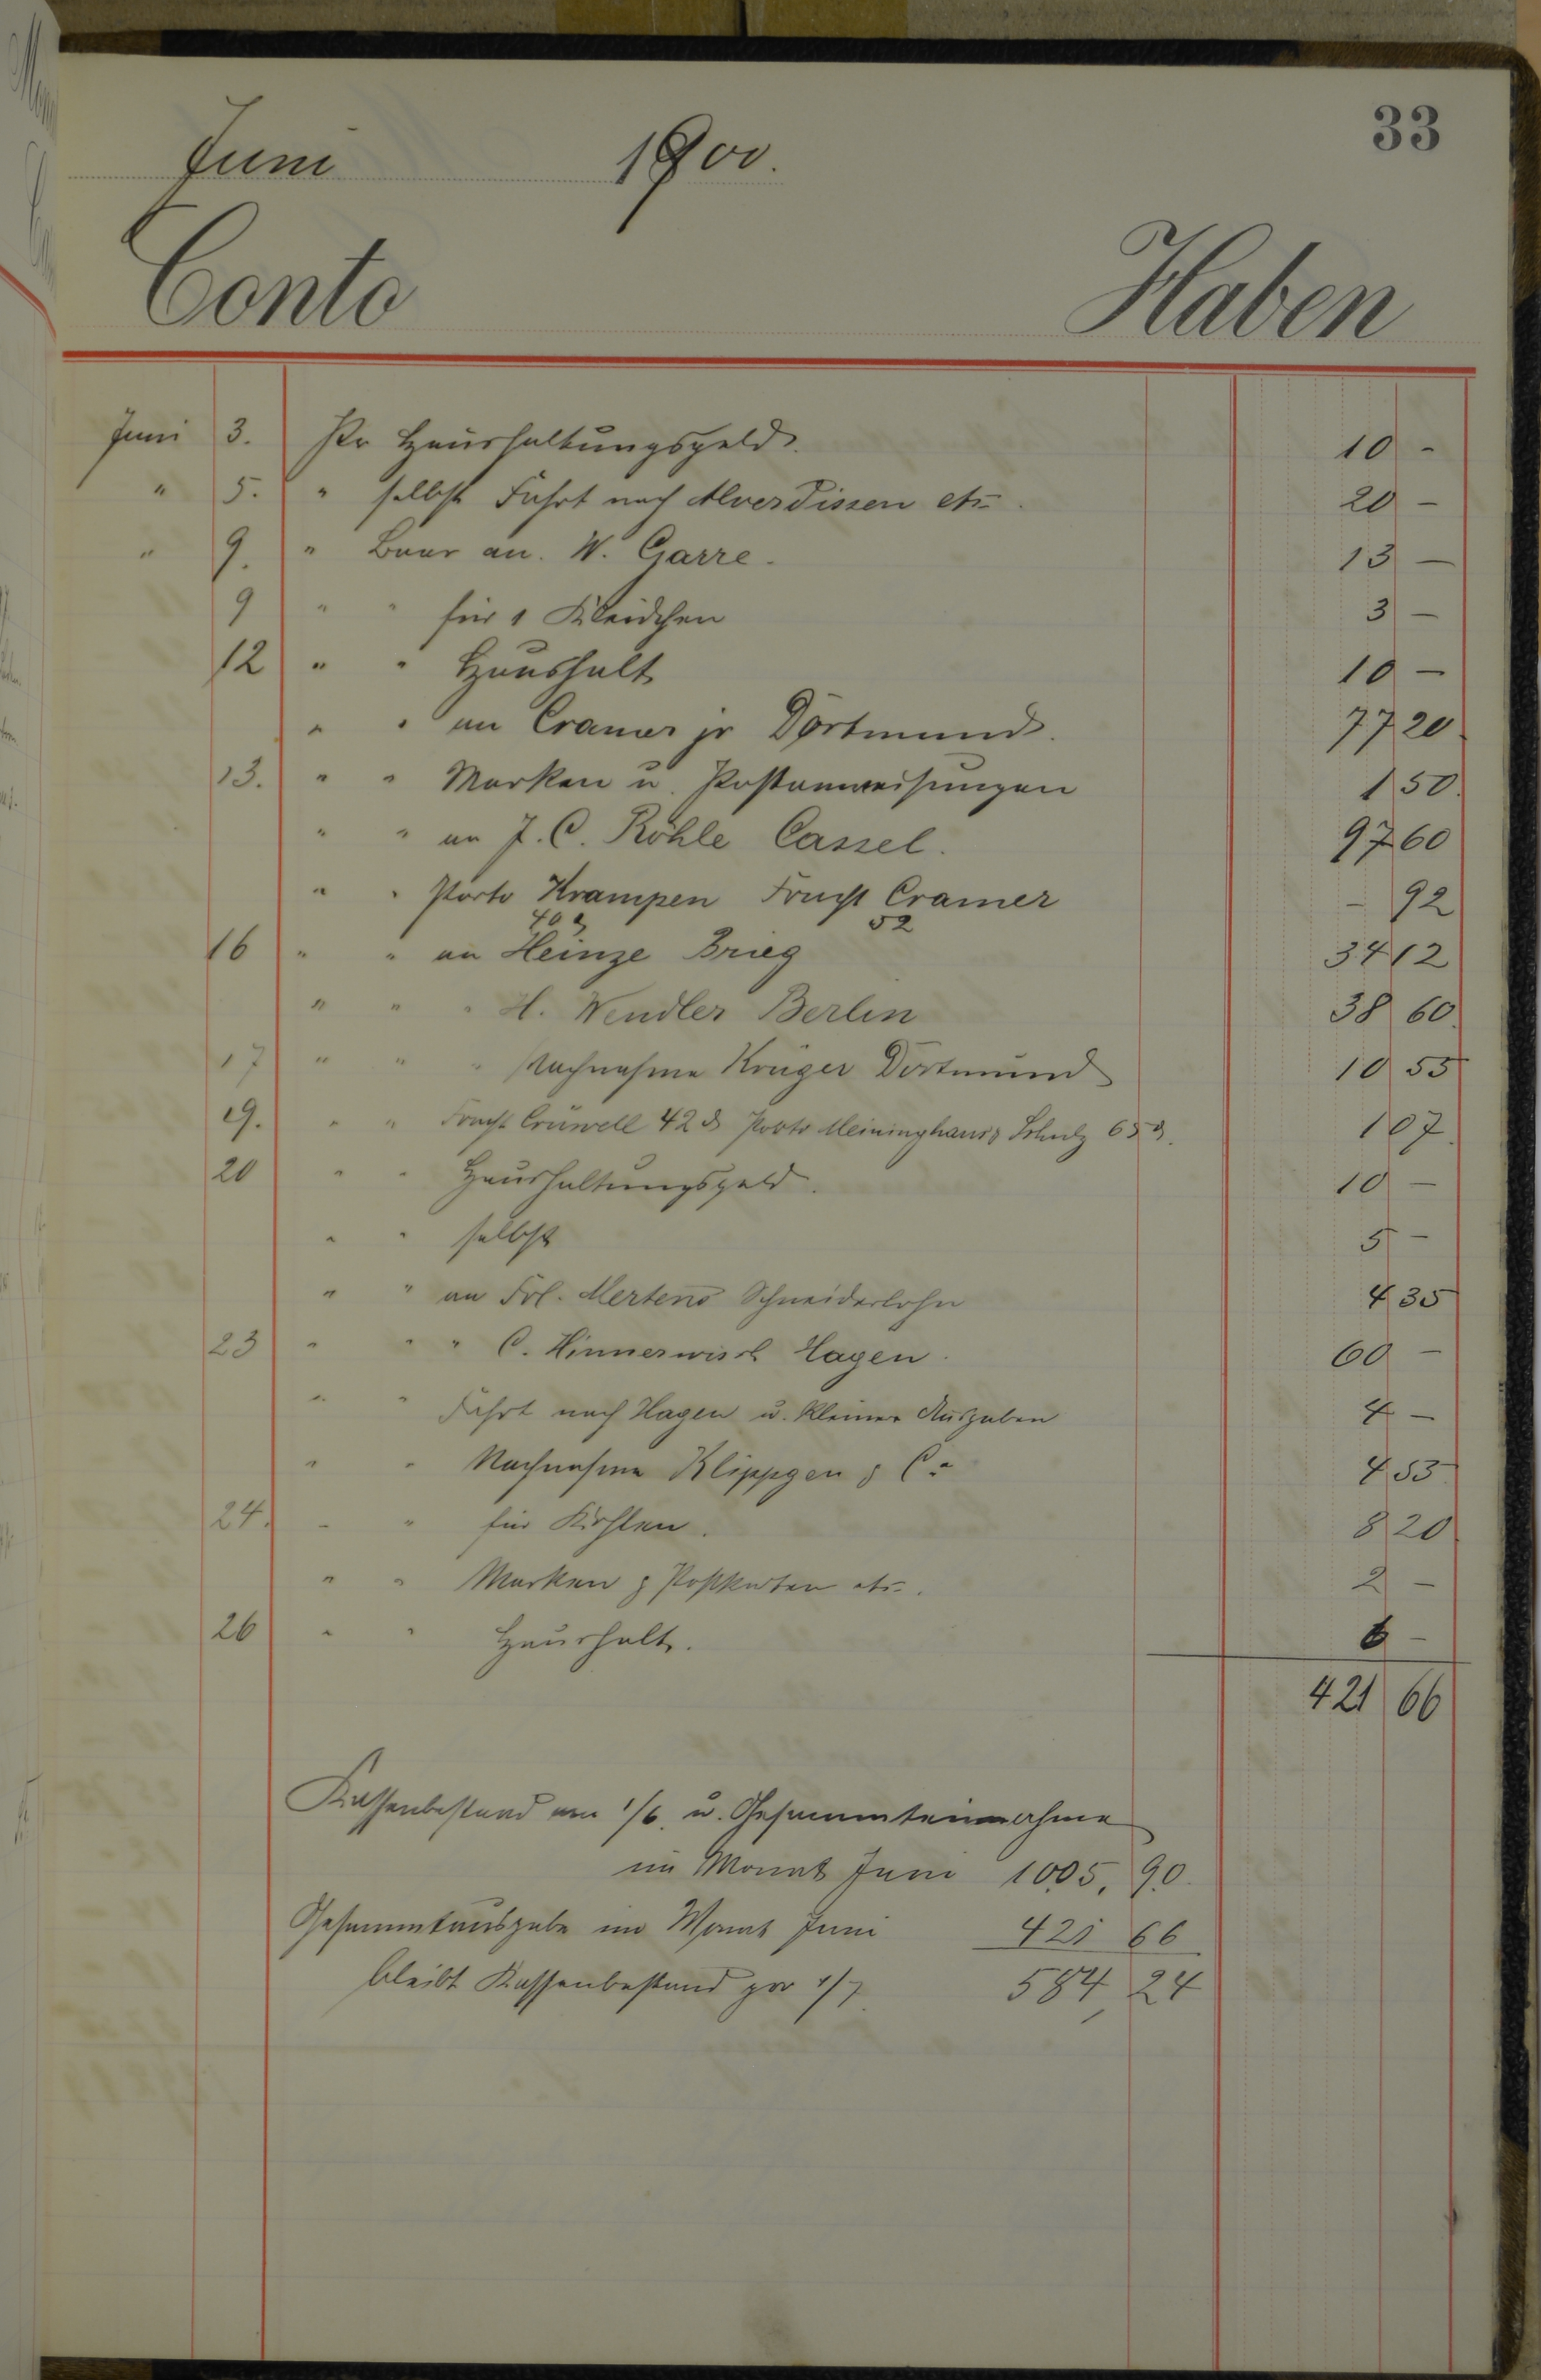 33
Juni 1900.
Conto Haben
Juni 3. Pr Haushaltungsgeld. 10 -
" 5. " selbst Fahrt nach Alverdissen etc. 20 -
" 9. " Baar an W. Garre. 13 -
9 " " für 1 Kleidchen 3 -
12 " " Haushalt 10 -
" " an Cramer jr Dortmund. 77 20
13. " " Marken u. Postanweisungen 1 50.
" " an J. C. Röhle Cassel. 97 60
" " Porto Krampen Fracht Cramer - 92
40 ₰ 52
16 " " an Heinze Brieg 34 12
" " " H. Wendler Berlin 38 60.
17 " " " Nachnahme Krüger Dortmund 10 55
19. " " Fracht Crüwell 42 ₰ Porto Meininghaus & Schulz 65 ₰. 1 07.
20 " " Haushaltungsgeld. 10 -
" " selbst 5 -
" " an Frl. Mertens Schneiderlohn 4 35
23 " " " C. Hinnerwisch Hagen. 60 -
" " Fahrt nach Hagen u. kleiner Ausgaben 4 -
" " Nachnahme Klippgen & Co 4 53
24. " " für Kohlen. 8 20
" " Marken & Postkarten etc. 2 -
26 " " Haushalt. 6 -
421 66
Kassenbestand am 1/6. u. Gesammteinnahme
im Monat Juni 1005, 90.
Gesammtausgabe im Monat Juni 421 66
bleibt Kassenbestand pro 1/7. 584, 24